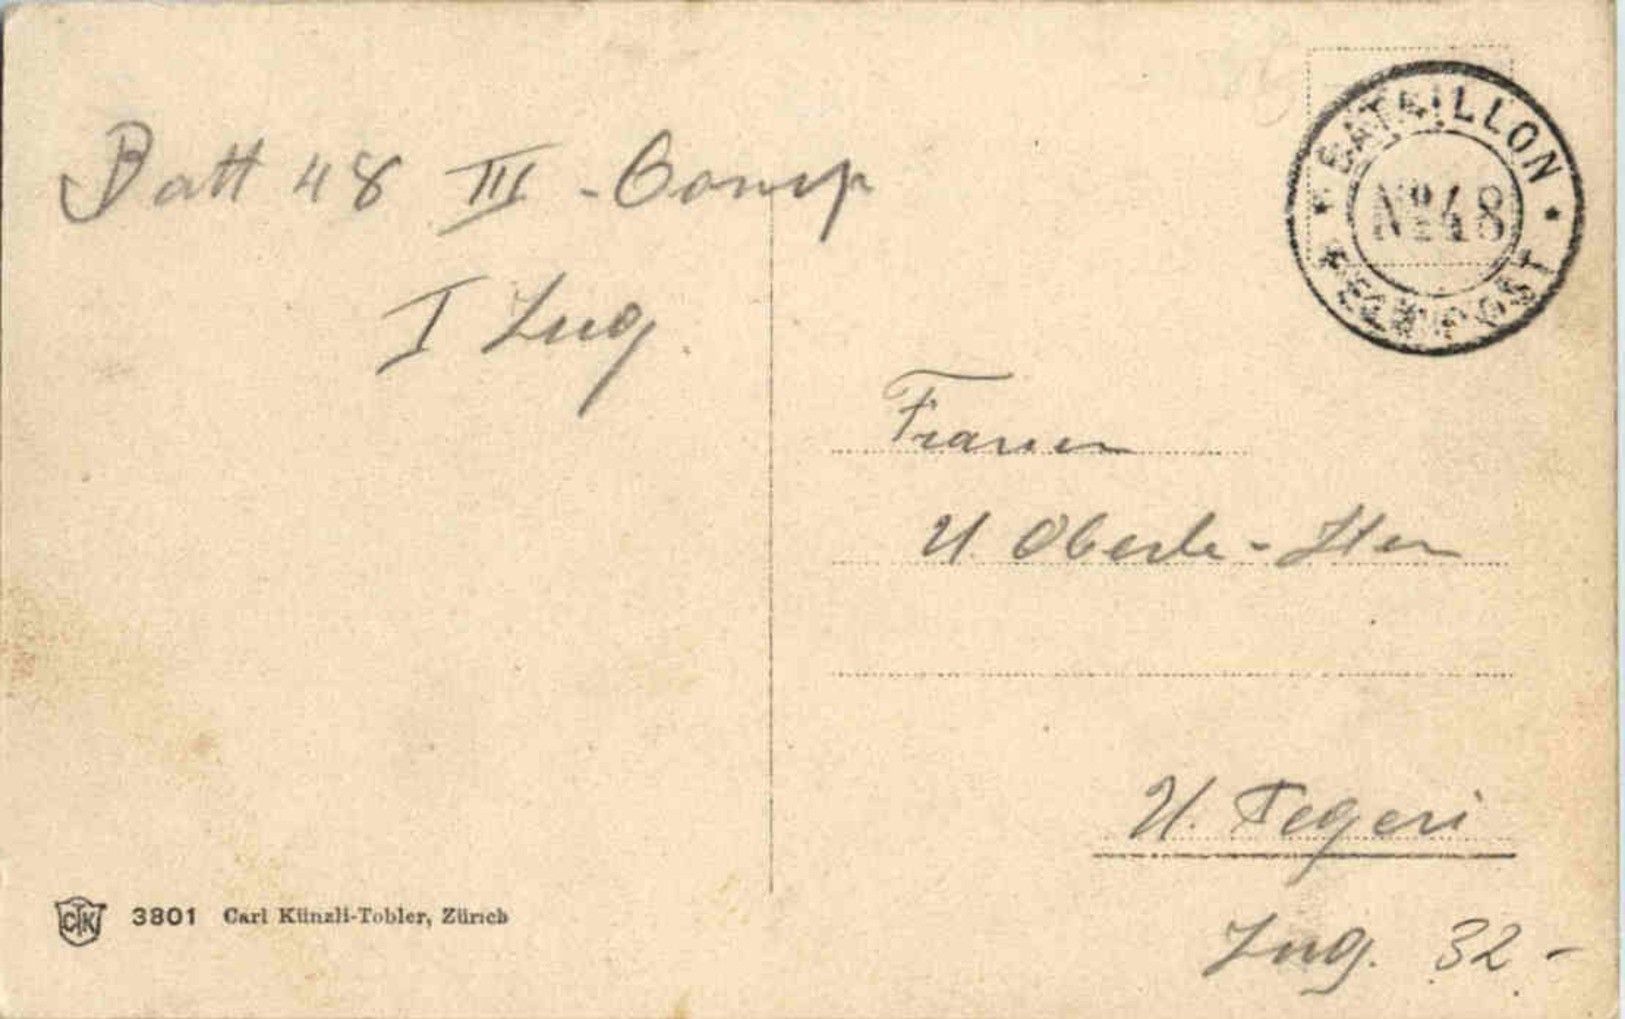 Batt 48 III - Comp
I Zug.
* BATAILLON *
No 48
* FELDPOST
U. Oberle - Iten
U. Aegeri
Zug. 32 -
CTK 3801 Carl Künzli-Tobler, Zürich